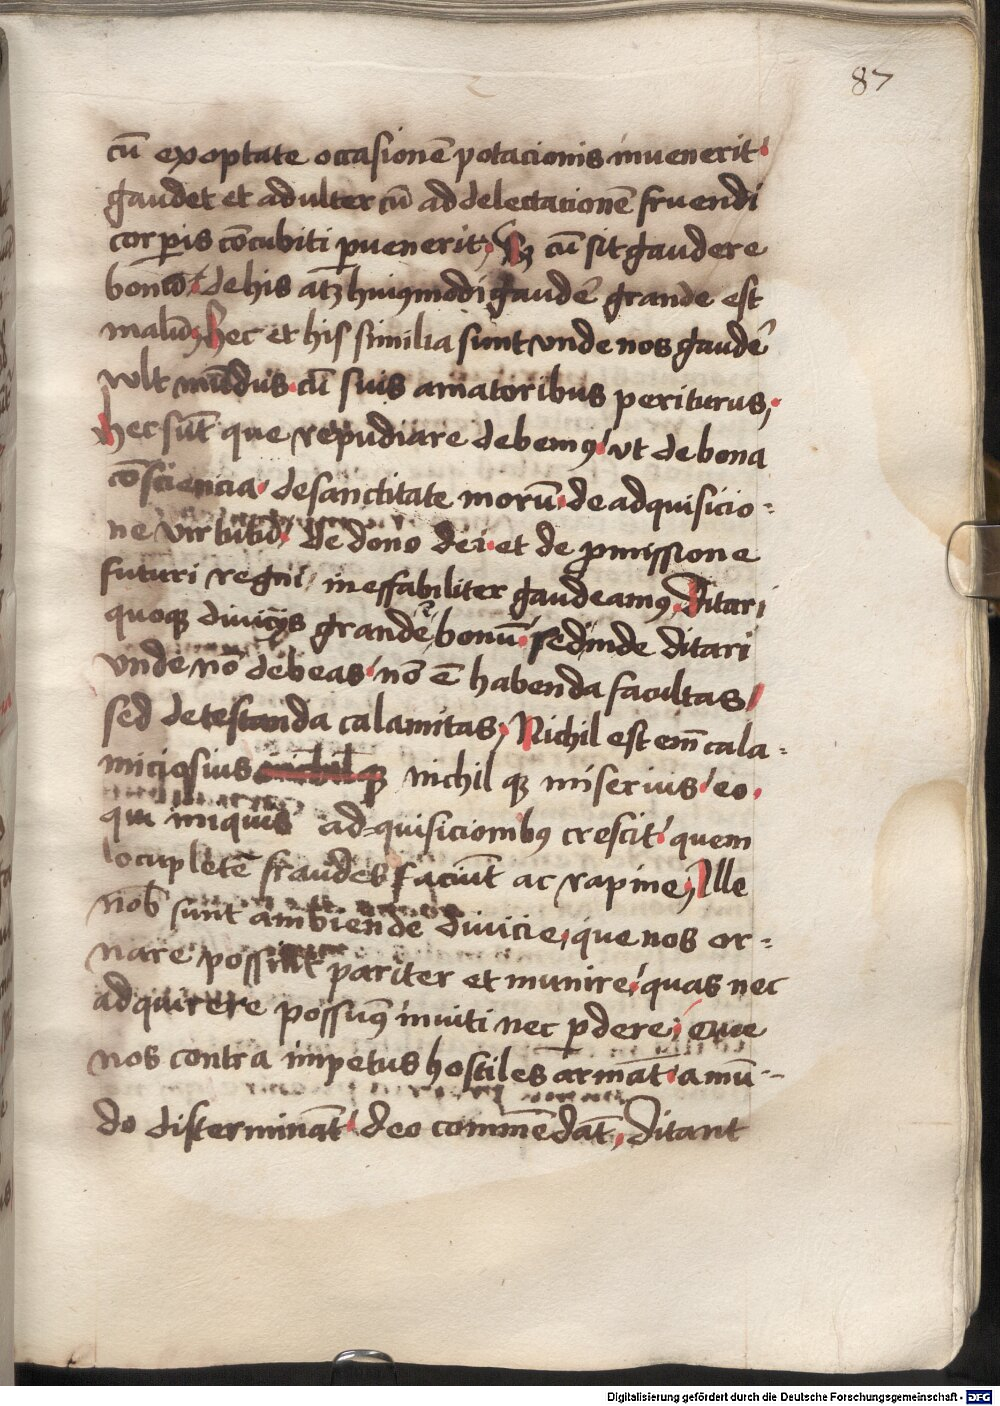 87
cū exoptate occasionē potacionis inuenerit
gaudet et adulter cū ad delectacionē fruendi
corꝑis cōcubiti ꝑuenerit, Sꝫ cū sit gaudere
bonū de his atꝫ huiꝰmodi gaudē grande est
malū, hec et his similia sunt vnde nos gaudē
wlt mūdus cū suis amatoribus periturus,
hec sūt que repudiare debemꝰ vt de bona
cōsciencia desanctitate morū de adquisicio-
ne virtutū de dono dei et de ꝓmissione
futuri regni ineffabiliter gaudeamꝰ, Ditari
quoqꝫ diuicijs grande bonū sed inde ditari
vnde nō debeas nō ē habenda facultas
sed detestanda calamitas, Nichil est em̄ cala-
miciosius nichil qꝫ miserius eo
qui iniquis ad-quisicionibꝰ crescit quem
locupletē fraudes faciūt ac rapine, Ille
nob̄ sunt ambiende diuicie, que nos or-
nare possint pariter et munire quas nec
adquirere possumꝰ inuiti nec ꝑdere, que
nos contra impetus hostiles armāt a mū-
do distermināt deo commēdāt, ditant
Digitalisierung gefördert durch die Deutsche Forschungsgemeinschaft - DFG